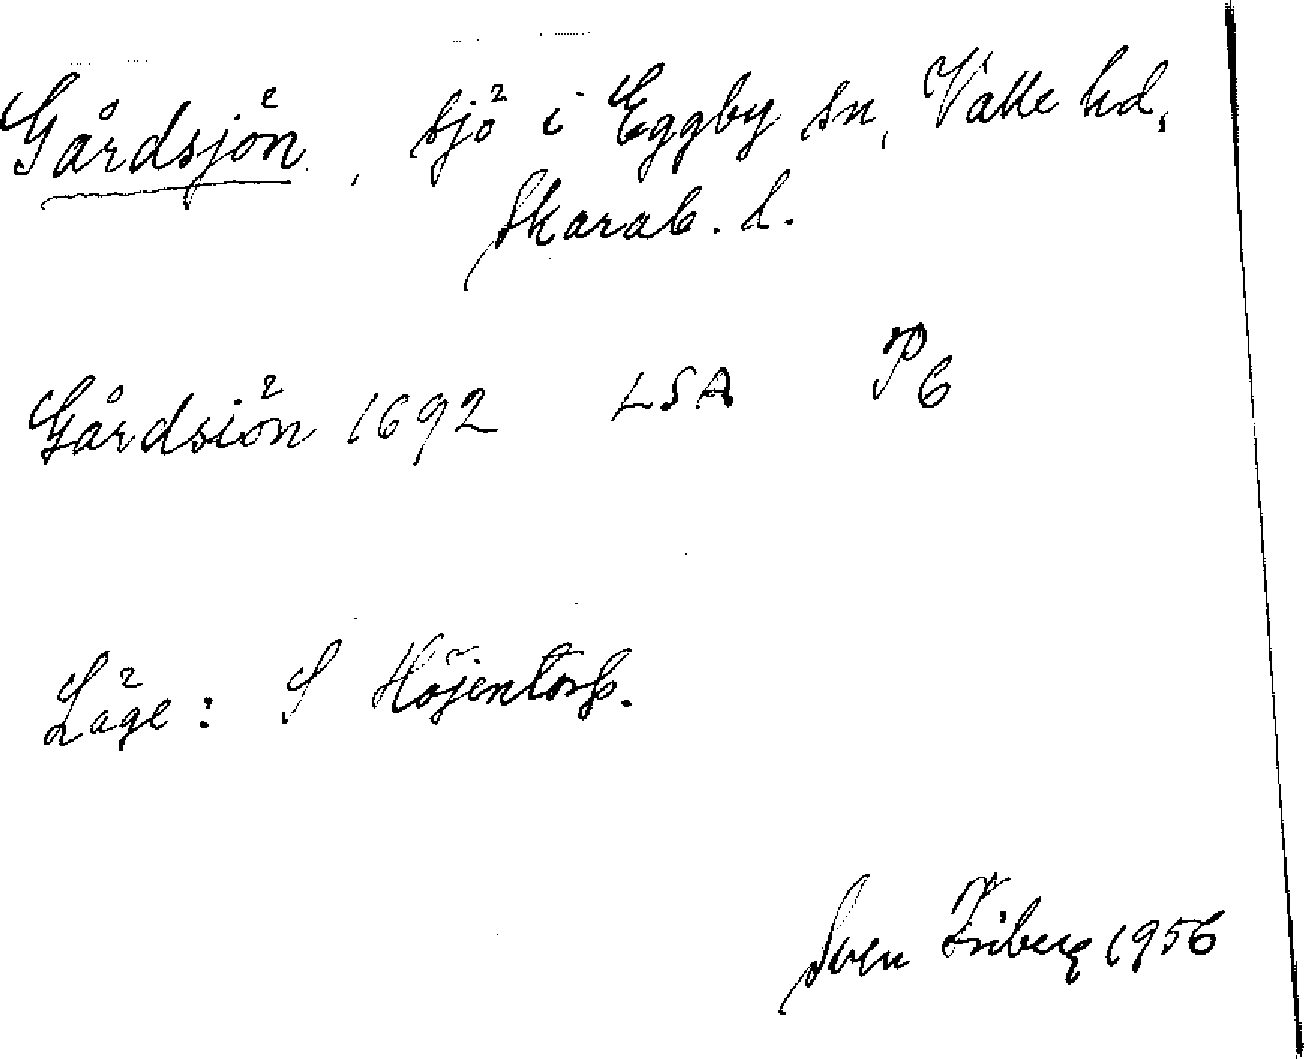 Gårdsjön, sjö i Eggby sn, Valle hd,
Skarab. l.
Gårdsiön 1692 LSA P6
Läge: S Höjentorp.
Sven Friberg 1956